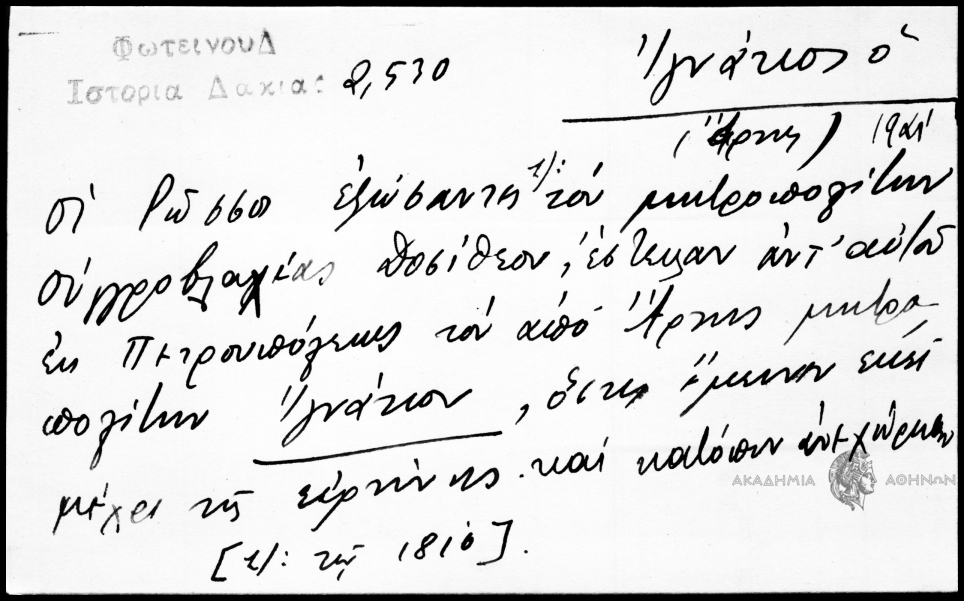 ΦωτεινουΔ
Ιστορια Δακιας 2,530
Ἰγνάτιος ὁ
(Ἄρτης)
οἱ Ρῶσσοι ἐξώσαντες τὸν μητροπολίτην
οὑγγροβλαχίας Δοσίθεον, ἔστειλαν ἀντ' αὐτοῦ
ἐκ Πετρουπόλεως τὸν ἀπὸ Ἄρτης μητρο
πολίτην Ἰγνάτιον, ὅστις ἔμεινεν ἐκεῖ
μέχρι τῆς εἰρήνης καὶ κατόπιν ἀνεχώρησεν
ΑΚΑΔΗΜΙΑ ΑΘΗΝΩΝ
[τῷ 1810].